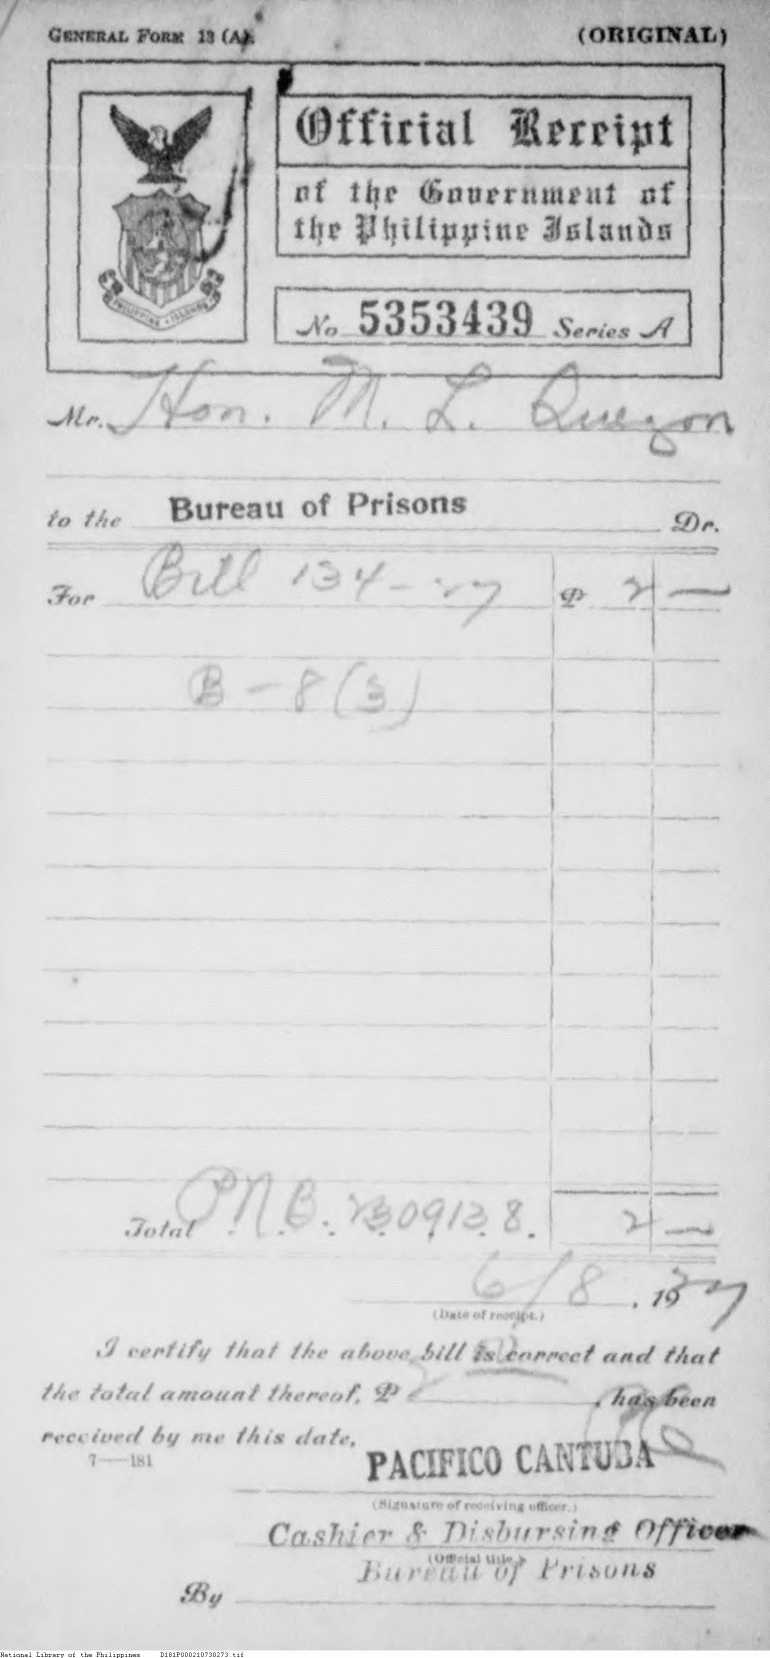 GENERAL FORM 13 (A).
(ORIGINAL)
Official Receipt
of the Government of
the Philippine Islands
PHILIPPINE ISLANDS
No. 5353439 Series A
Mr. Hon. M. L. Quezon
to the Bureau of Prisons Dr.
For Bill 134-27 ₱ 2 —
B-8(3)
Total P.N.B. 2309138. 2 —
6/8, 1927
(Date of receipt.)
I certify that the above bill is correct and that
the total amount thereof, ₱ 2 —, has been
received by me this date.
7——181
PACIFICO CANTUBA
(Signature of receiving officer.)
Cashier & Disbursing Officer
(Official title.)
Bureau of Prisons
By
National Library of the Philippines D181P000210730273.tif